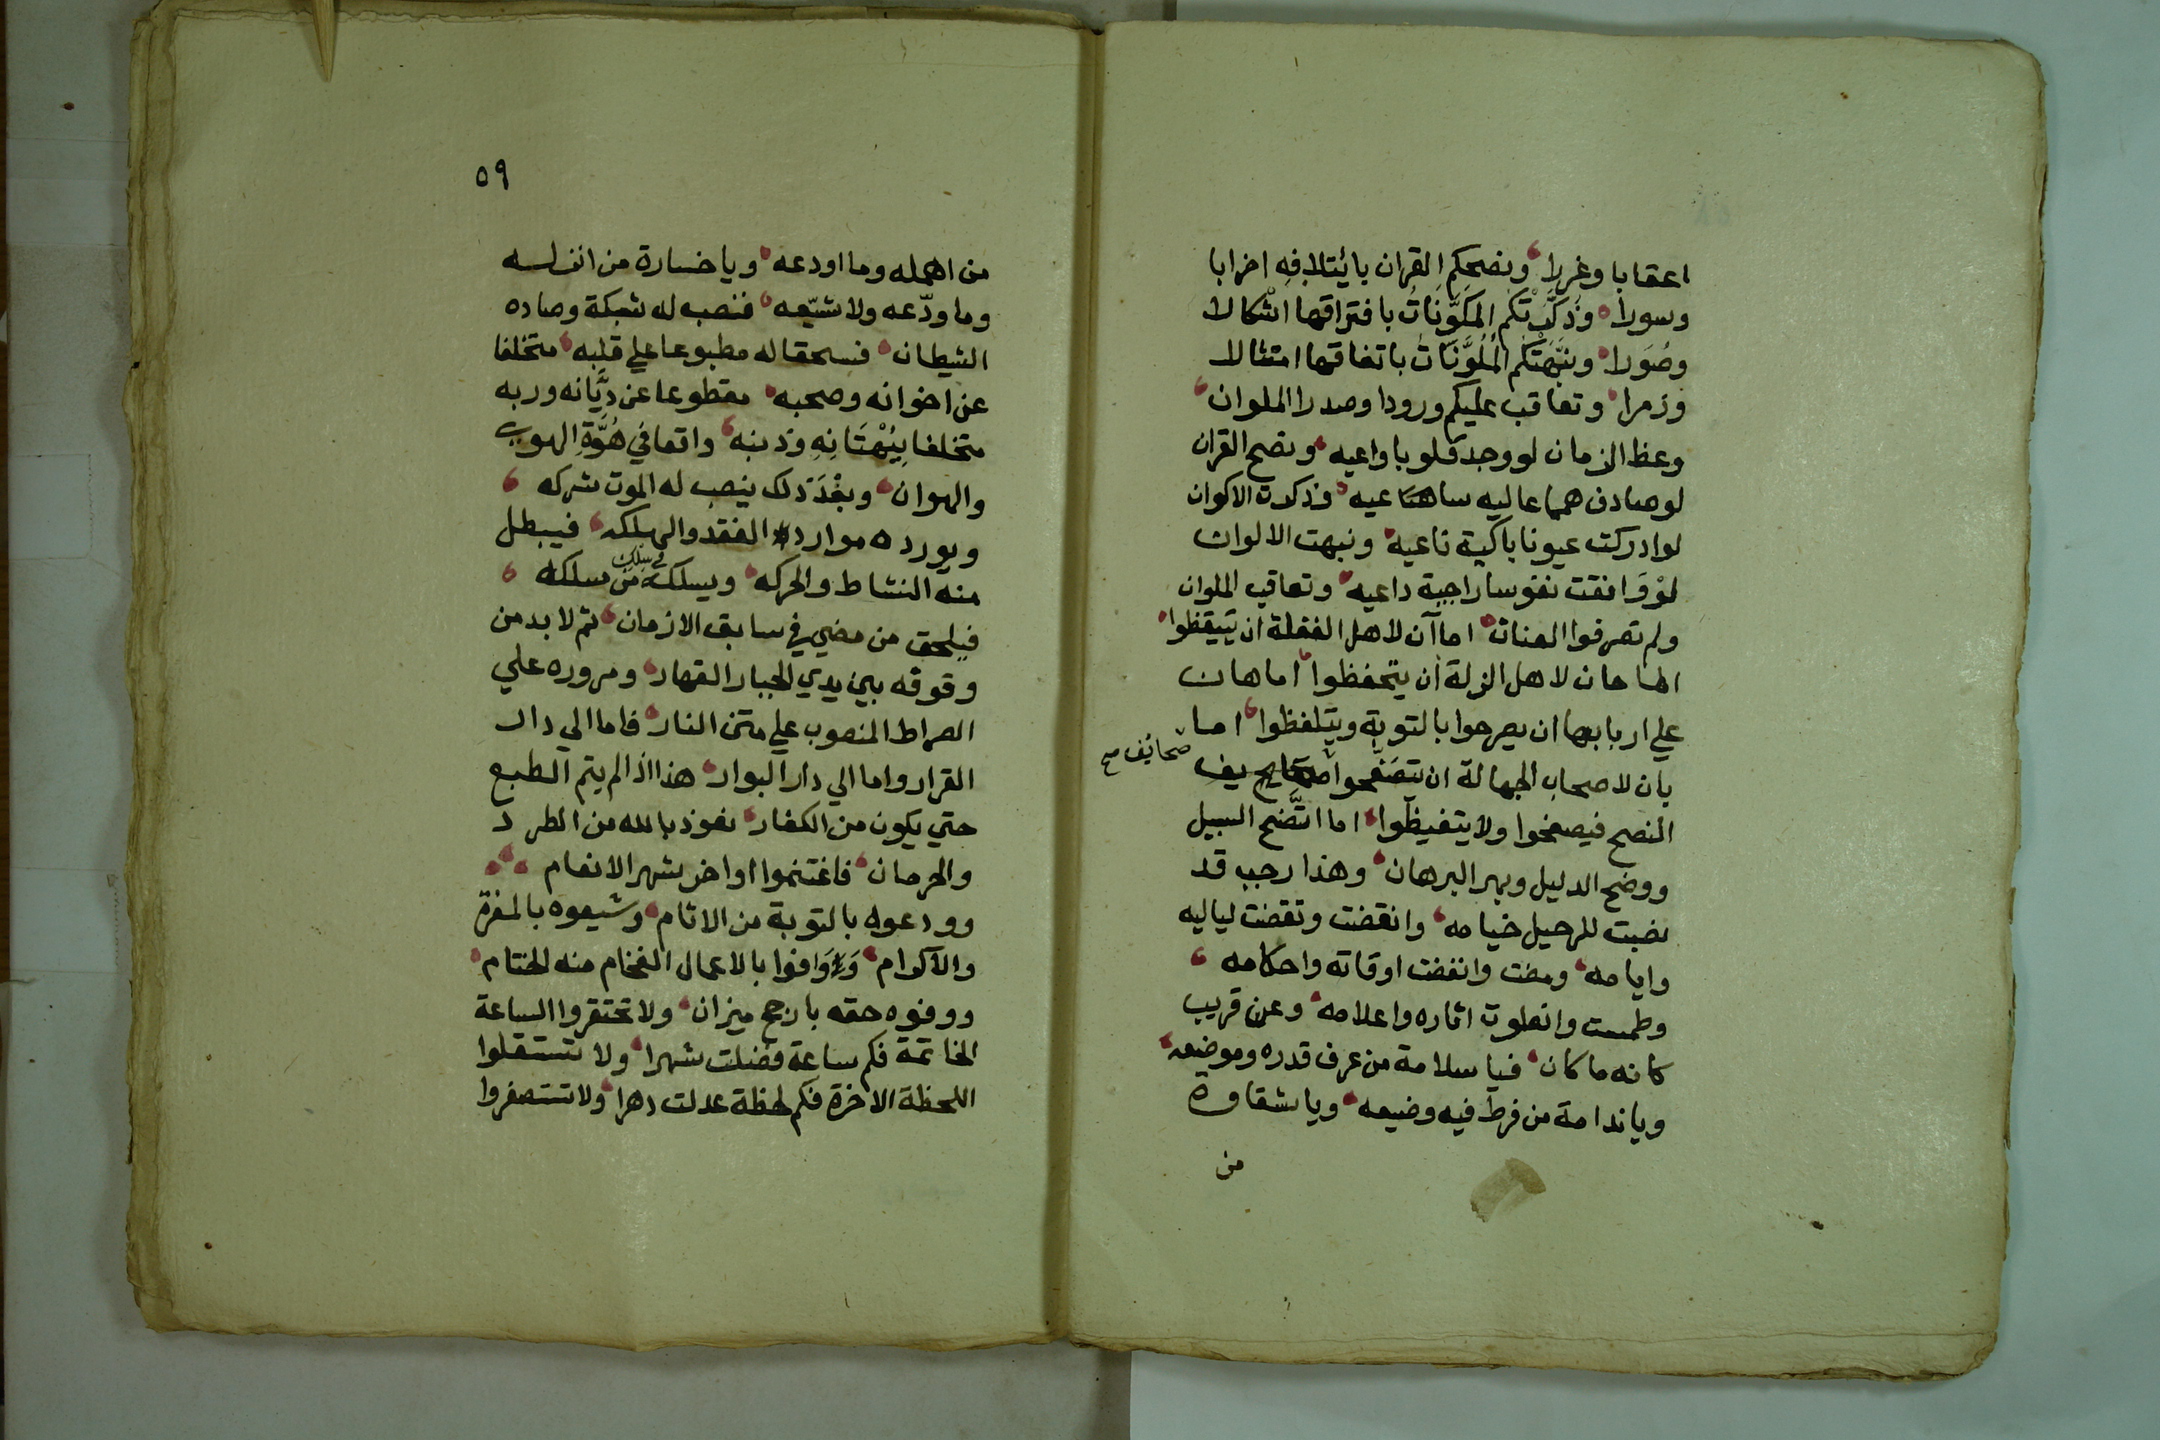 اعقابا وغررا ونصحكم القران بائتلافه احزابا
وسورا وذكرتكم المكونات بافتراقها اشكالا
وصورا ونبهتكم الملونات باتفاقها امتثالا
وزمرا وتعاقب عليكم ورودا وصدرا الملوان
وعظ الزمان لو وجد قلوبا واعيه ونصح القران
لو صادف همما عاليه ساعيه وذكرت الاكوان
لو ادركت عيونا باكية ناعيه ونبهت الالوان
لو وافقت نفوسا راجية داعيه وتعاقب الملوان
ولم تصرفوا العنان اما آن لاهل الغفلة ان يتيقظوا
اما حان لاهل الزلة أن يتحفظوا اما هان
علي اربابها ان يصرحوا بالتوبة ويتلفظوا اما
بان لاصحاب الجهالة ان يتصفحوا
صحائف صح
النصح فيصفحوا ولا يتغيظوا اما اتضح السبيل
ووضح الدليل وبهر البرهان وهذا رجب قد
نصبت للرحيل خيامه وانقضت وتقضت لياليه
وايامه ومضت وانقضت اوقاته واحكامه
وطمست وانطوت اثاره واعلامه وعن قريب
كانه ما كان فيا سلامة من عرف قدره وموضعه
ويا ندامة من فرط فيه وضيعه ويا شقاوة
من
٥٩
من اهمله وما اودعه ويا خسارة من انزله
وما ودّعه ولا شيّعه فنصب له شبكة وصاده
الشيطان فسحقا له مطبوعا علي قلبه متخلفا
عن اخوانه وصحبه مقطوعا عن ديّانه وربه
متخلفا ببهتانه وذنبه واقعا في هوّة الهوي
والهوان وبعد ذلك ينصب له الموت شركه
ويورده موارد الفقد والهلكه فيبطل
منه النشاط والحركه ويسلكه في سلك من سلكه
فيلحق من مضي في سابق الازمان ثم لا بد من
وقوفه بين يدي الجبار القهار ومروره علي
الصراط المنصوب علي متن النار فاما الي دار
القرار واما الي دار البوار هذا اذا لم يتم الطبع
حتي يكون من الكفار نعوذ بالله من الطرد
والحرمان فاغتنموا اواخر شهر الانعام
وودعوه بالتوبة من الاثام وشيعوه بالمغرة
والاكرام ووافوا بالاعمال الفخام منه الختام
ووفوه حقه بارجح ميزان ولا تحتقروا الساعة
الخاتمة فكم ساعة فضلت شهرا ولا تستقلوا
اللحظة الاخرة فكم لحظة عدلت دهرا ولا تستصغروا